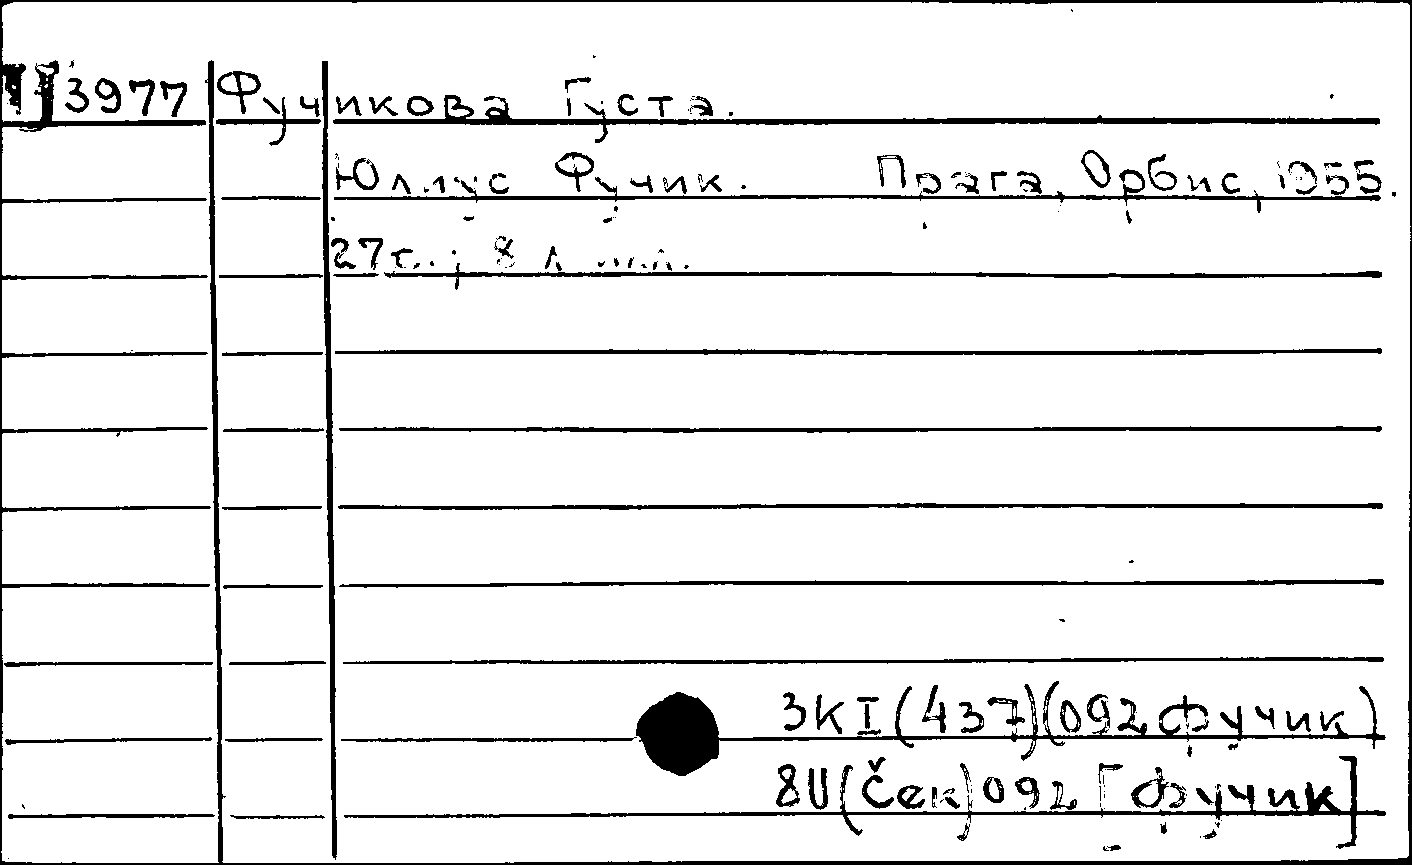 Ц3977 Фучикова Густа.
Юлиус Фучик. Прага, Орбис, 1955.
27 с.; 8 л. илл.
3КI(437)(092Фучик)
8U(Ček)092[Фучик]